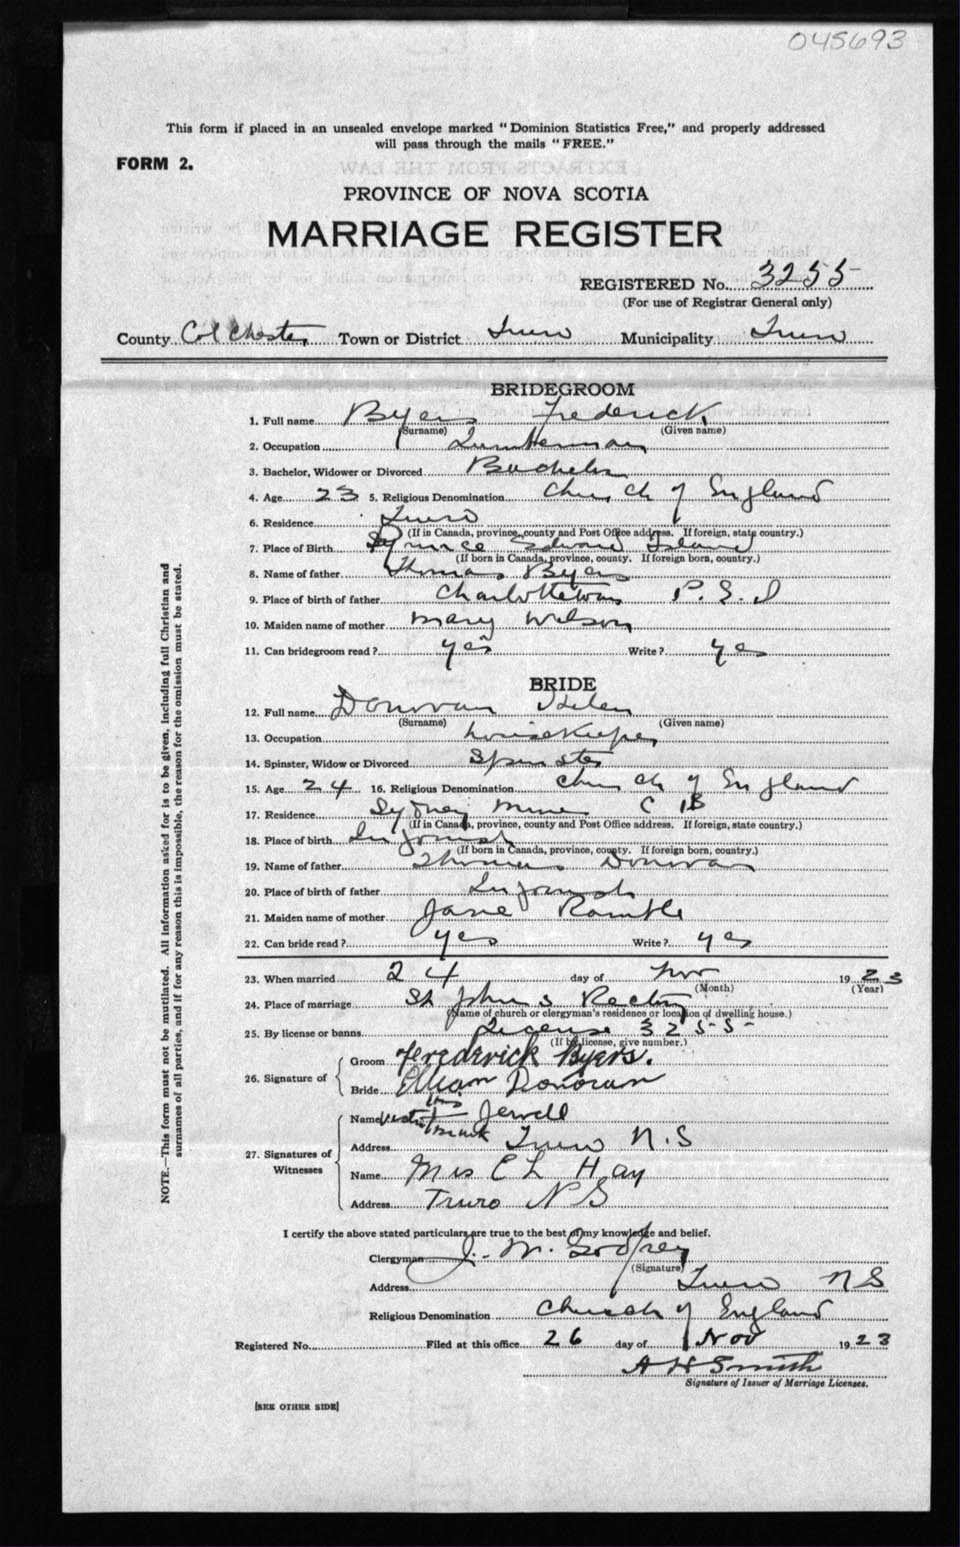 045693
This form if placed in an unsealed envelope marked "Dominion Statistics Free," and properly addressed
will pass through the mails "FREE."
FORM 2.
PROVINCE OF NOVA SCOTIA
MARRIAGE REGISTER
REGISTERED No. 3255
(For use of Registrar General only)
County Colchester Town or District Truro Municipality Truro
BRIDEGROOM
1. Full name Byers Frederick
(Surname) (Given name)
2. Occupation Lumberman
3. Bachelor, Widower or Divorced Bachelor
4. Age 23 5. Religious Denomination Church of England
6. Residence Truro
(If in Canada, province, county and Post Office address. If foreign, state country.)
7. Place of Birth Prince Edward Island
(If born in Canada, province, county. If foreign born, country.)
8. Name of father Thomas Byers
9. Place of birth of father Charlottetown P. E. I
10. Maiden name of mother Mary Wilson
11. Can bridegroom read? yes Write? yes
BRIDE
12. Full name Donovan Helen
(Surname) (Given name)
13. Occupation housekeeper
14. Spinster, Widow or Divorced Spinster
15. Age 24 16. Religious Denomination Church of England
17. Residence Sydney Mines C B
(If in Canada, province, county and Post Office address. If foreign, state country.)
18. Place of birth Ingonish
(If born in Canada, province, county. If foreign born, country.)
19. Name of father Thomas Donovan
20. Place of birth of father Ingonish
21. Maiden name of mother Jane
22. Can bride read? yes Write? yes
23. When married 24 day of Nov 1923
(Month) (Year)
24. Place of marriage St John's Rectory
(Name of church or clergyman's residence or location of dwelling house.)
25. By license or banns License 3255
(If by license, give number.)
26. Signature of
Groom Frederick Byers.
Bride Donovan
27. Signatures of Witnesses
Name his Jewell
mark
Address Truro N.S
Name Mrs C L Hay
Address Truro N S
I certify the above stated particulars are true to the best of my knowledge and belief.
Clergyman J. M. Godfrey
(Signature)
Address Truro N S
Religious Denomination Church of England
Registered No. Filed at this office 26 day of Nov 1923
A H Smith
Signature of Issuer of Marriage Licenses.
[SEE OTHER SIDE]
NOTE.—This form must not be mutilated. All information asked for is to be given, including full Christian and
surnames of all parties, and if for any reason this is impossible, the reason for the omission must be stated.